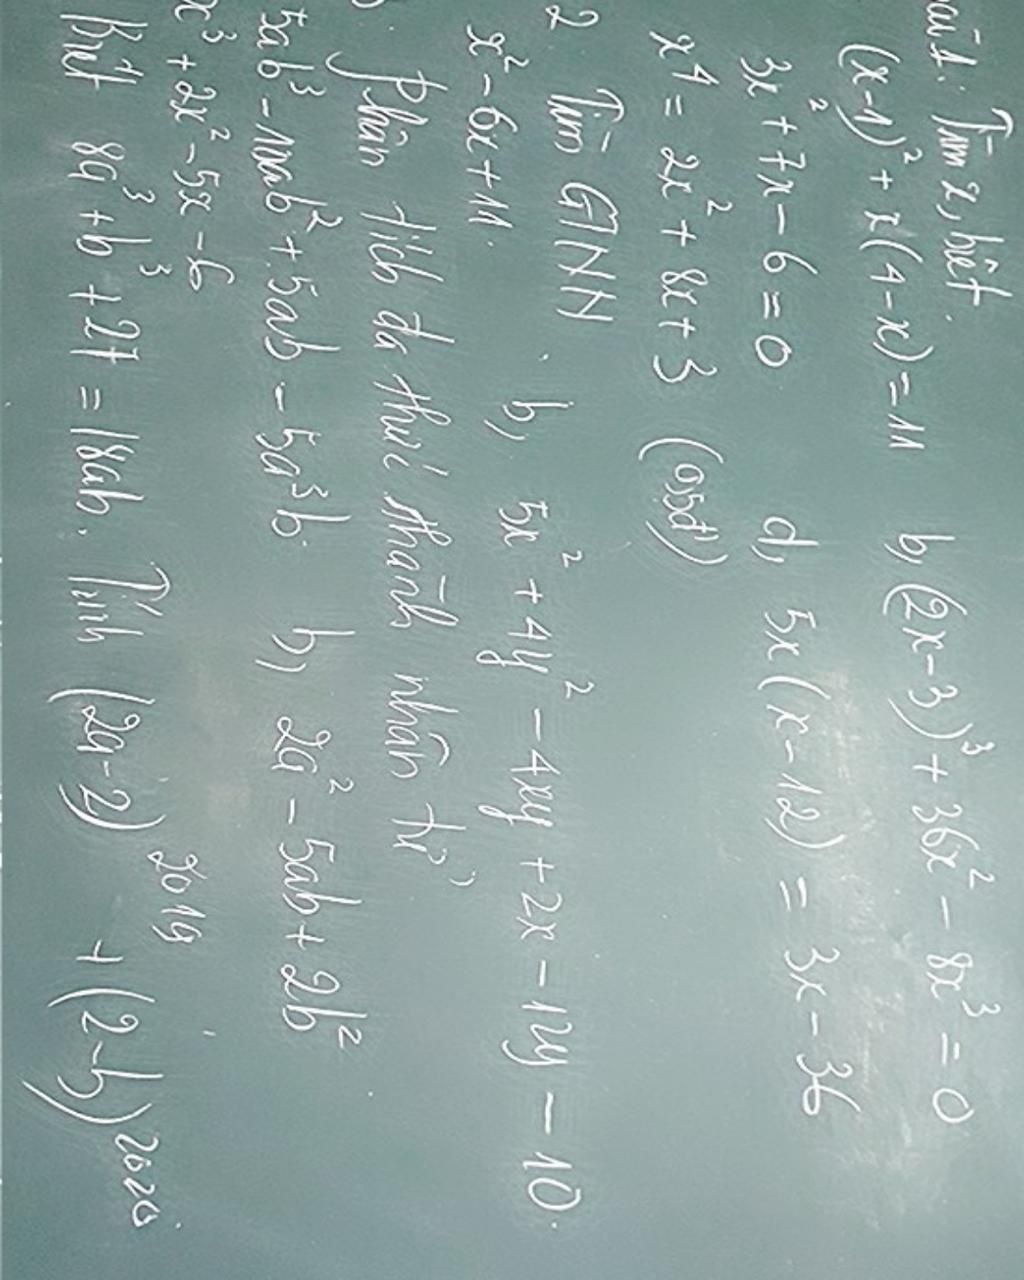 ài 1: Tìm x, biết.
(x-1)² + x(4-x) = 11 b, (2x-3)³ + 36x² - 8x³ = 0
3x² + 7x - 6 = 0 d, 5x(x-12) = 3x - 36
x⁴ = 2x² + 8x + 3 (0,5đ)
2 Tìm GTNN
x² - 6x + 11. b, 5x² + 4y² - 4xy + 2x - 12y - 10.
Phân tích đa thức thành nhân tử
5ab³ - 10ab² + 5ab - 5a³b. b, 2a² - 5ab + 2b²
x³ + 2x² - 5x - 6
Biết 8a³ + b³ + 27 = 18ab. Tính (2a-2)²⁰¹⁹ + (2-b)²⁰²⁰.